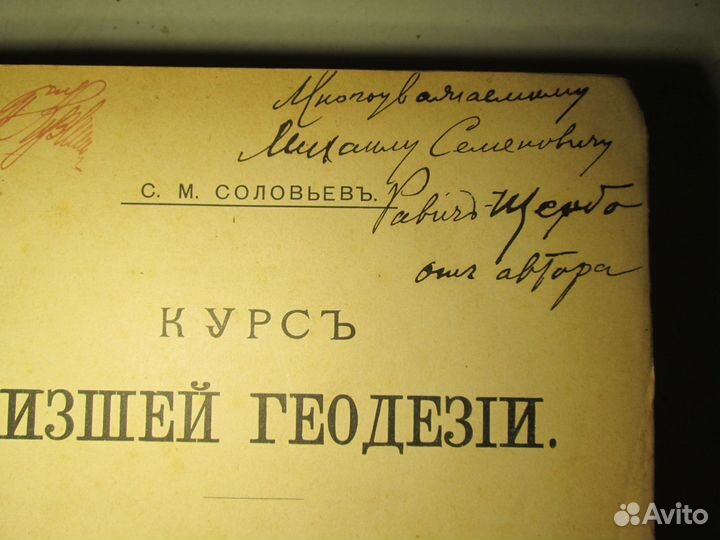 Многоуважаемому
Михаилу Семеновичу
Равичъ-Щербо
отъ автора
С. М. СОЛОВЬЕВЪ.
КУРСЪ
ИЗШЕЙ ГЕОДЕЗІИ.
Avito